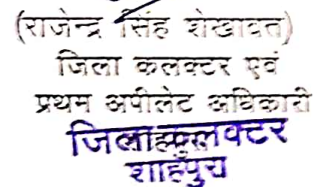 (राजेन्द्र सिंह शेखावत)
जिला कलक्टर एवं
प्रथम अपीलेट अधिकारी
जिला कलक्टर
शाहपुरा